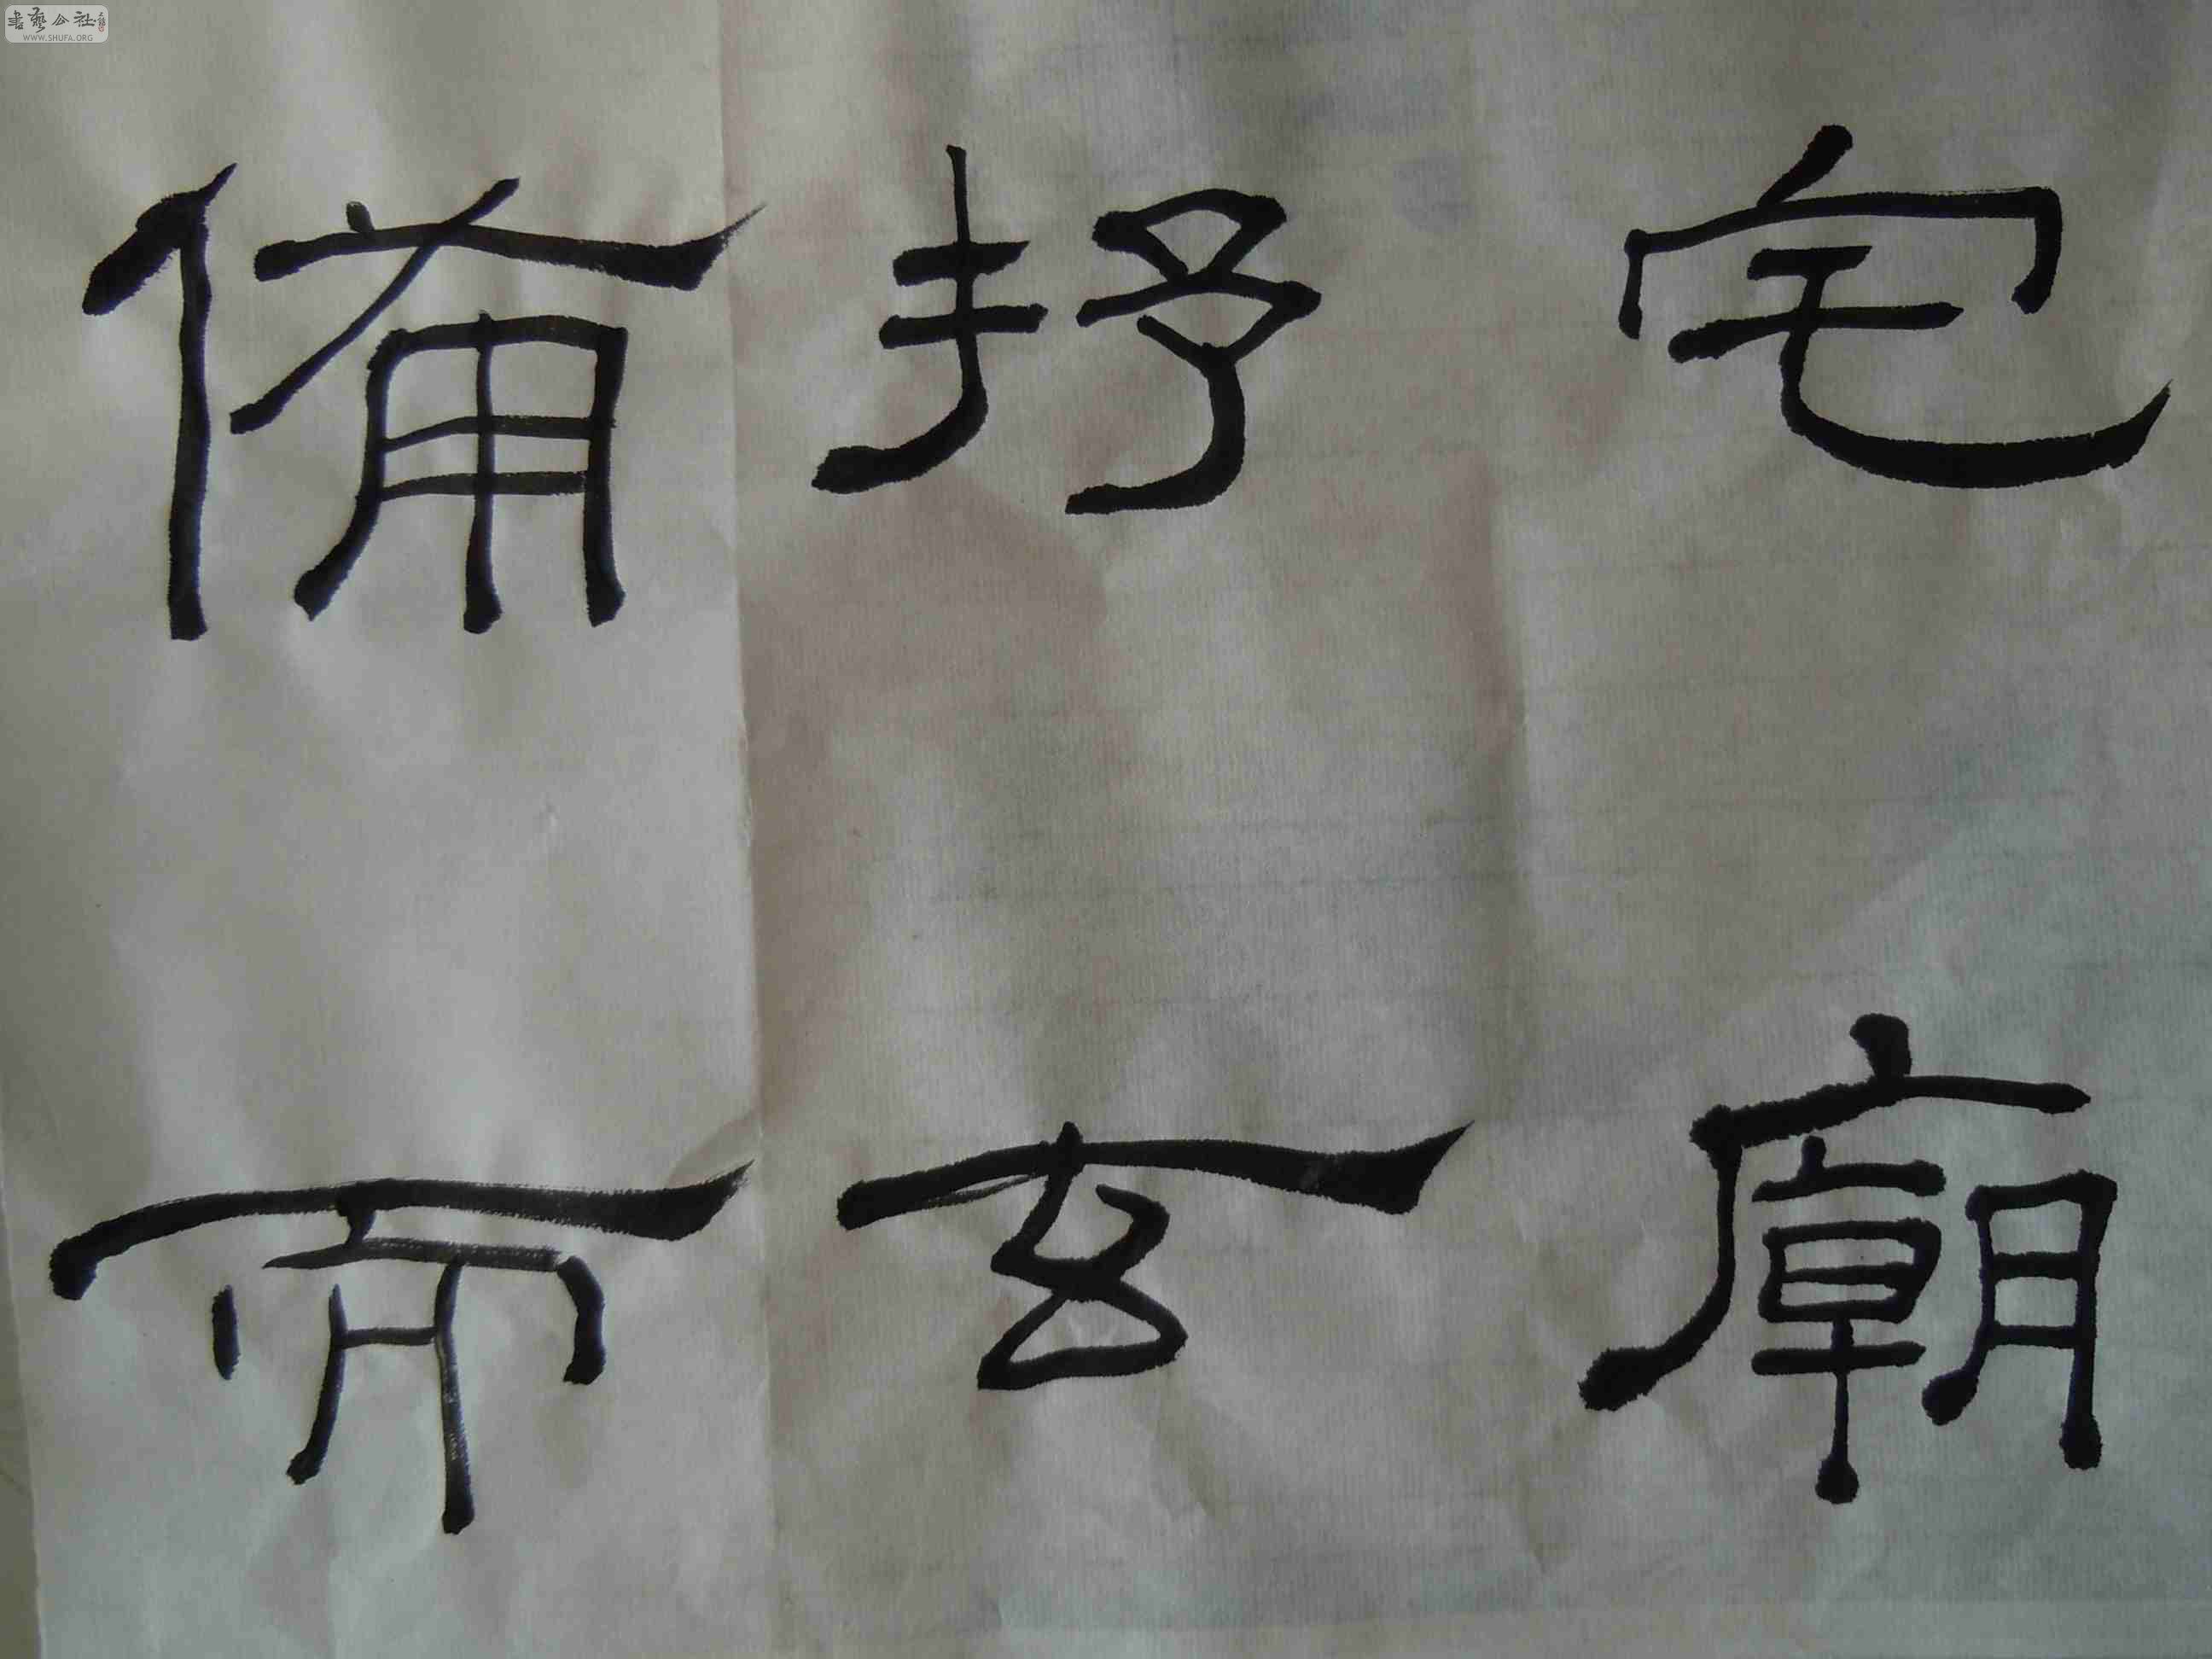 宅廟
抒玄
備而
書藝公社
WWW.SHUFA.ORG